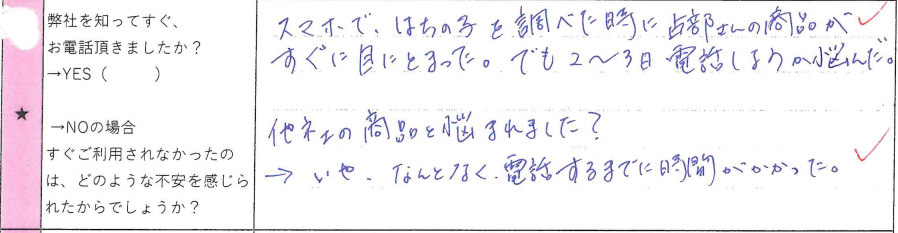 弊社を知ってすぐ、
お電話頂きましたか？
→YES（　　　）
★
→NOの場合
すぐご利用されなかったの
は、どのような不安を感じら
れたからでしょうか？
スマホで、はちの子を調べた時に占部さんの商品が
すぐに目にとまった。でも2〜3日電話しようか悩んだ。
他社の商品と悩まれましたか？
→ いや、なんとなく、電話するまでに時間がかかった。